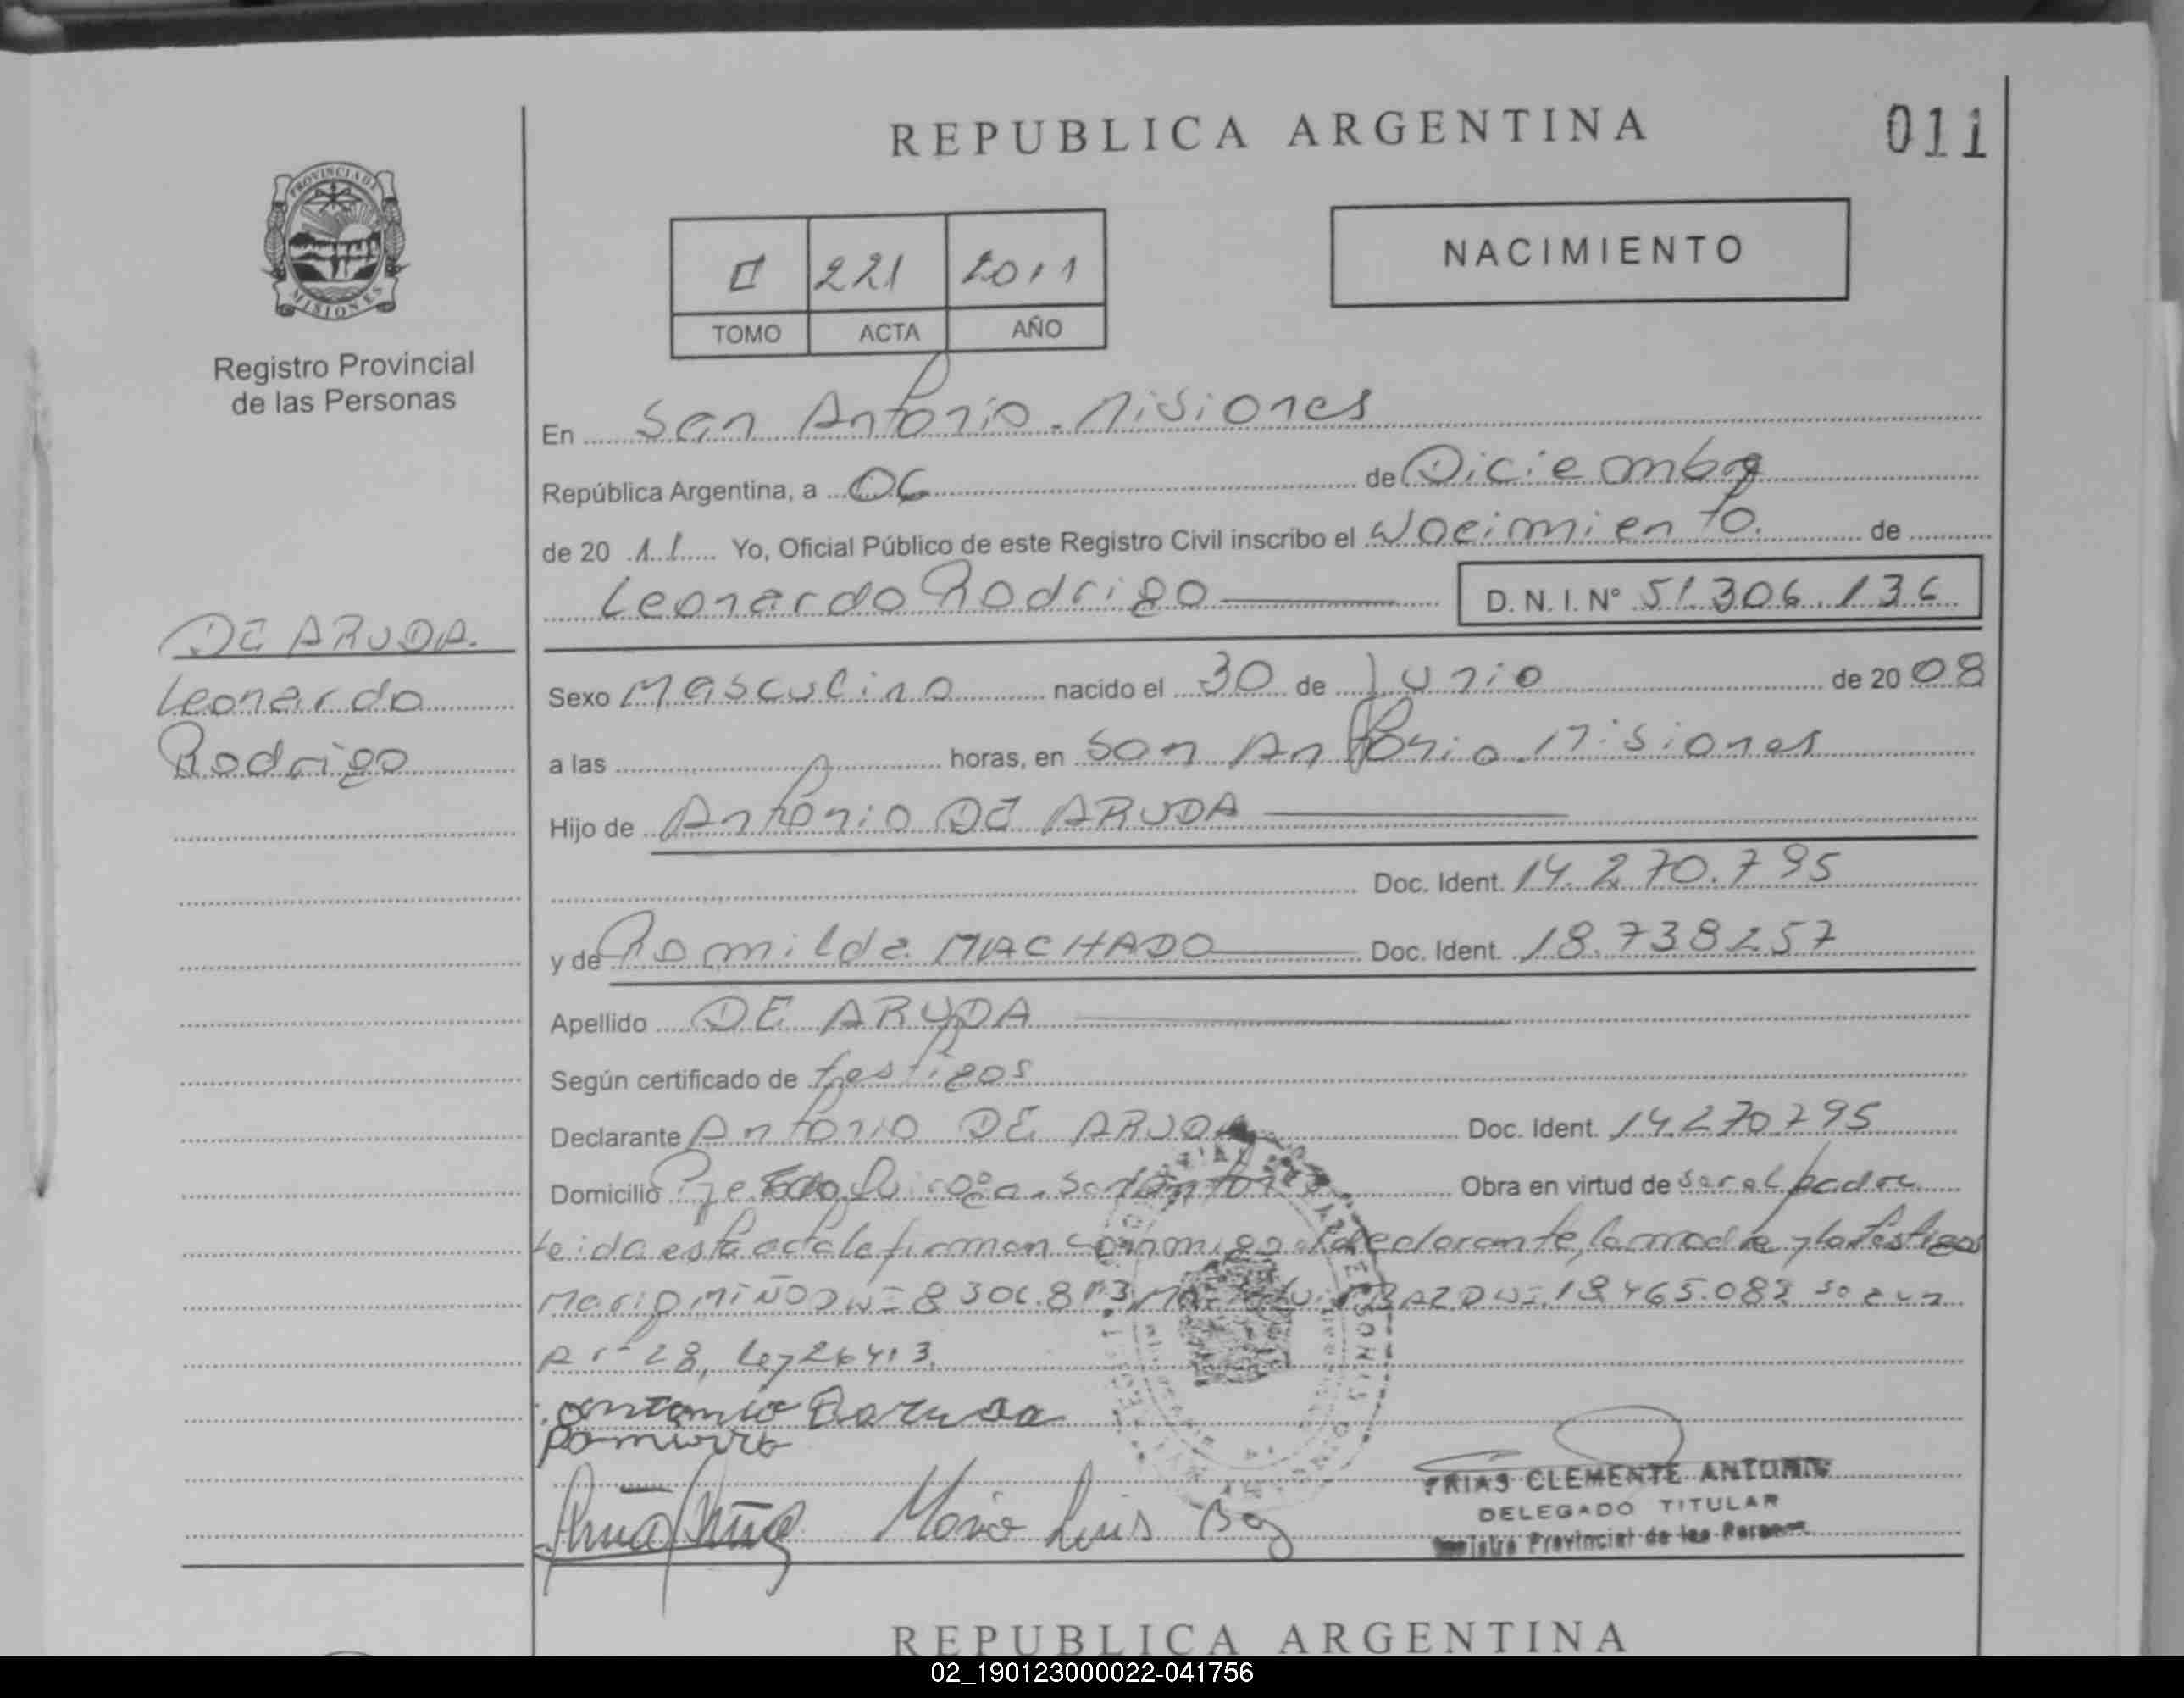 REPUBLICA ARGENTINA
011
PROVINCIA DE
MISIONES
Registro Provincial
de las Personas
221 2011
TOMO ACTA AÑO
NACIMIENTO
En San Antonio. Misiones
República Argentina, a 06 de Diciembre
de 20 11 Yo, Oficial Público de este Registro Civil inscribo el Nacimiento. de
Leonardo Rodrigo D.N.I. Nº 51.306.136
DE ARUDA.
Leonardo
Rodrigo
Sexo Masculino nacido el 30 de Junio de 20 08
a las horas, en San Antonio. Misiones
Hijo de Antonio DE ARUDA
Doc. Ident. 14.270.795
y de Romilda MACHADO Doc. Ident. 18.738.257
Apellido DE ARUDA
Según certificado de testigos
Declarante Antonio DE ARUDA Doc. Ident. 14.270.795
Domicilio San Antonio Obra en virtud de ser el padre
Leida esta acta la firman conmigo el declarante, la madre y los testigos
Mario MIÑO 18.465.083 según
Art 28, Ley 26413.
Mario Luis
FRIAS CLEMENTE ANTONIO
DELEGADO TITULAR
Registro Provincial de las Personas
REPUBLICA ARGENTINA
02_190123000022-041756